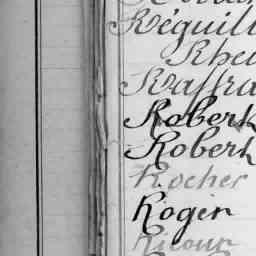 Réguill
Rhe
Raffra
Robert
Robert
Rocher
Roger
Ricour